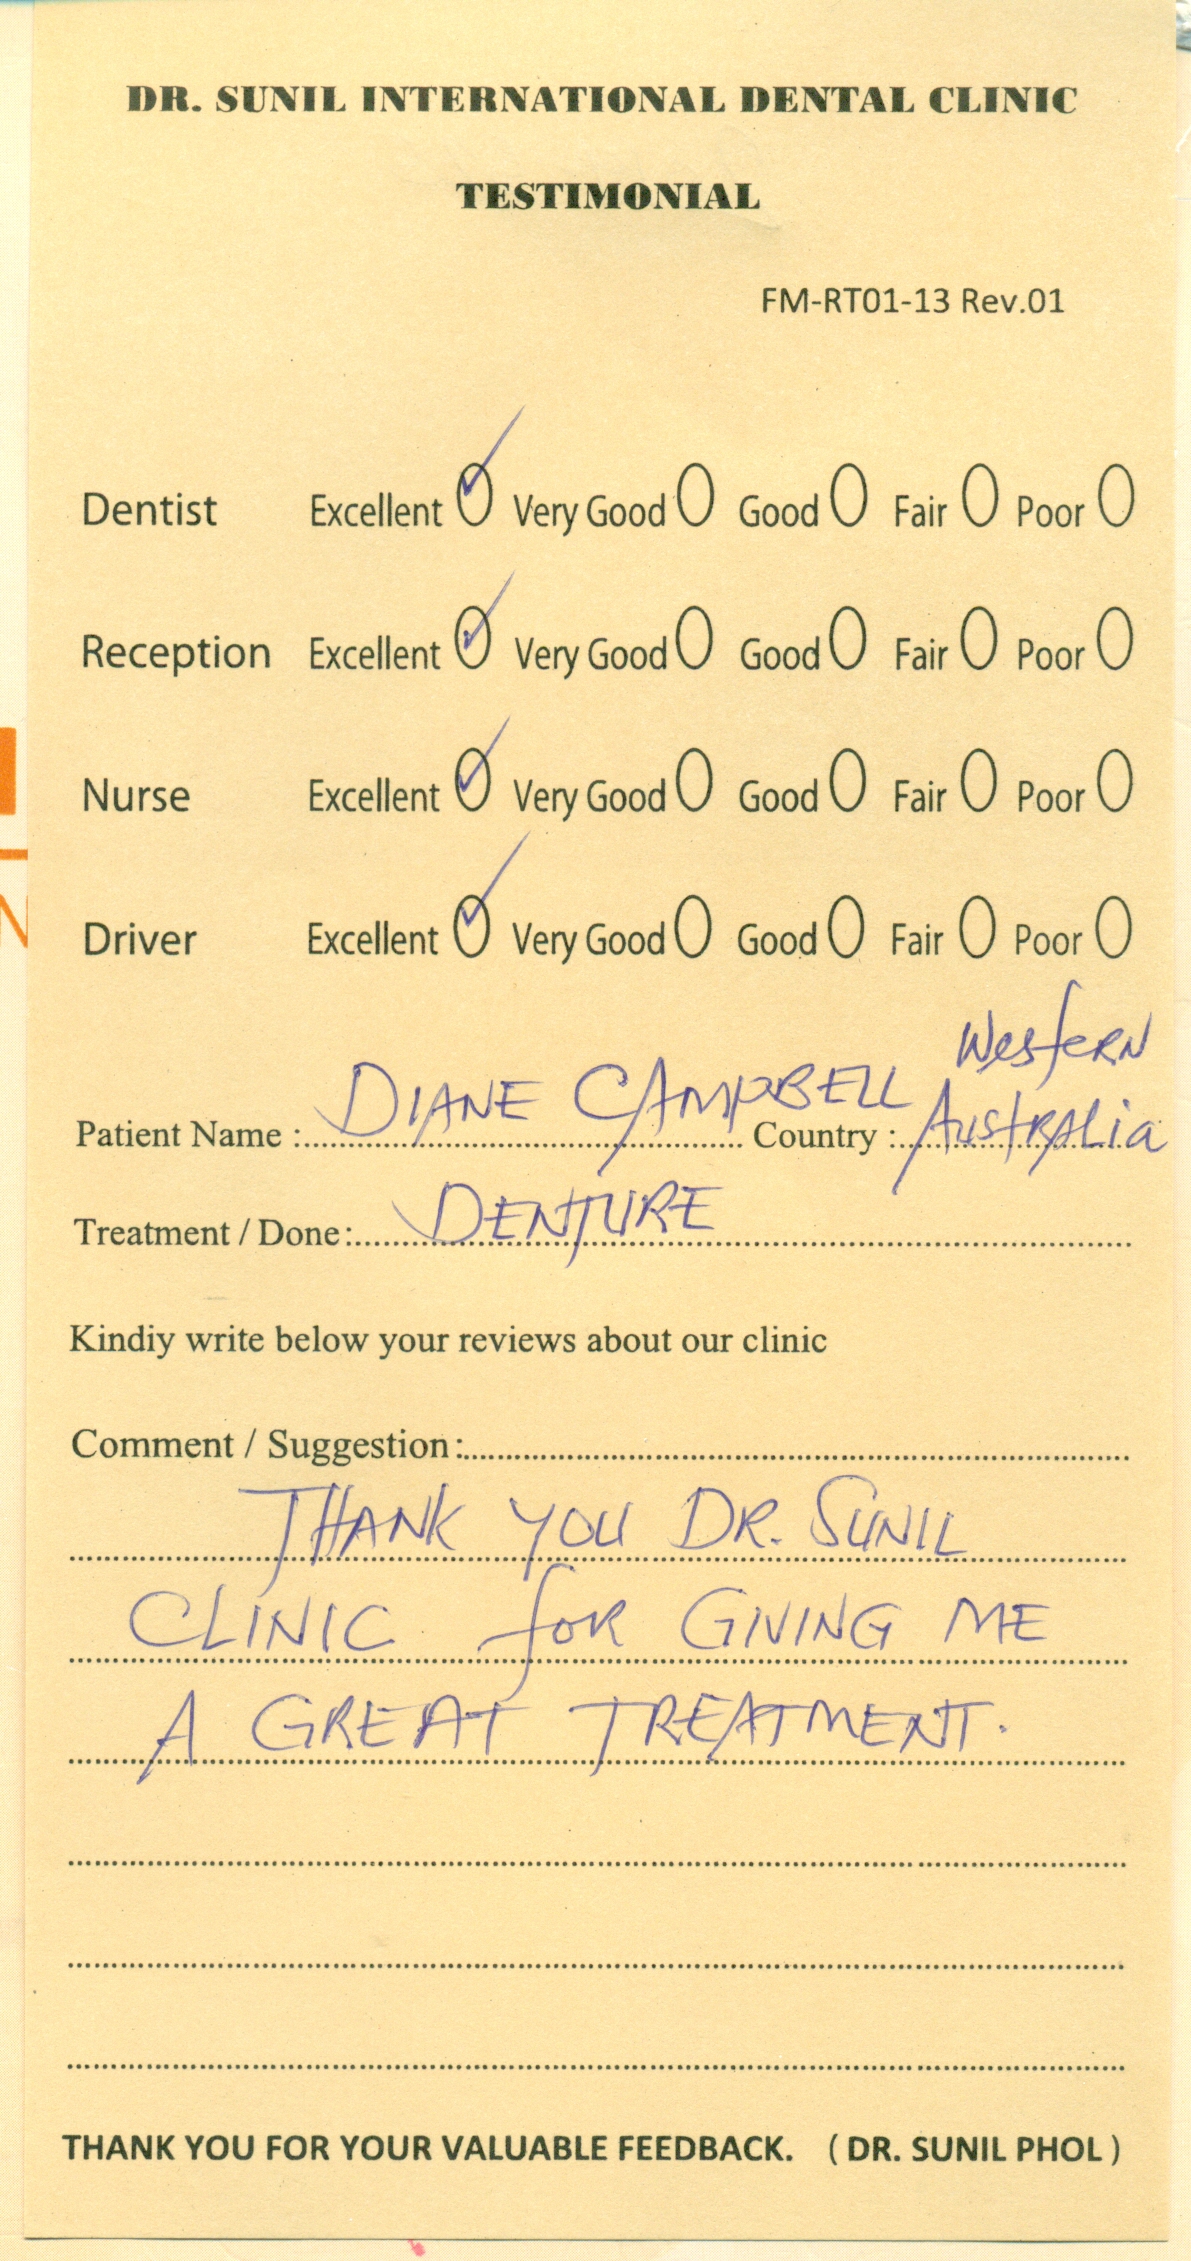 DR. SUNIL INTERNATIONAL DENTAL CLINIC
TESTIMONIAL
FM-RT01-13 Rev.01
Dentist Excellent Very Good Good Fair Poor
Reception Excellent Very Good Good Fair Poor
Nurse Excellent Very Good Good Fair Poor
Driver Excellent Very Good Good Fair Poor
Patient Name : DIANE CAMPBELL Country : Western Australia
Treatment / Done: DENTURE
Kindiy write below your reviews about our clinic
Comment / Suggestion:
THANK YOU DR. SUNIL
CLINIC for GIVING ME
A GREAT TREATMENT.
THANK YOU FOR YOUR VALUABLE FEEDBACK. ( DR. SUNIL PHOL )